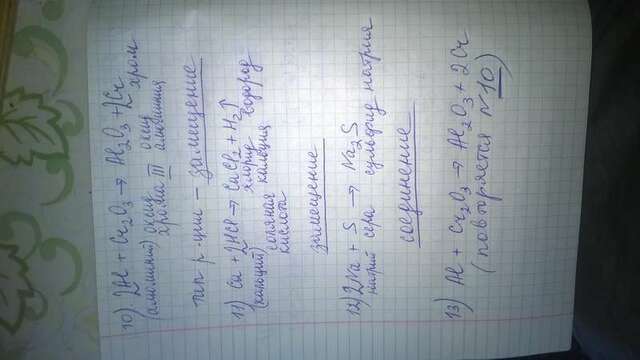 10) 2Al + Cr₂O₃ → Al₂O₃ + 2Cr
(алюминий) оксид хрома III оксид алюминия хром
тип р-ции - замещение
11) Ca + 2HCl → CaCl₂ + H₂↑
(кальций) соляная кислота хлорид кальция водород
замещение
12) 2Na + S → Na₂S
натрий сера сульфид натрия
соединение
13) Al + Cr₂O₃ → Al₂O₃ + 2Cr
(повторяется №10)